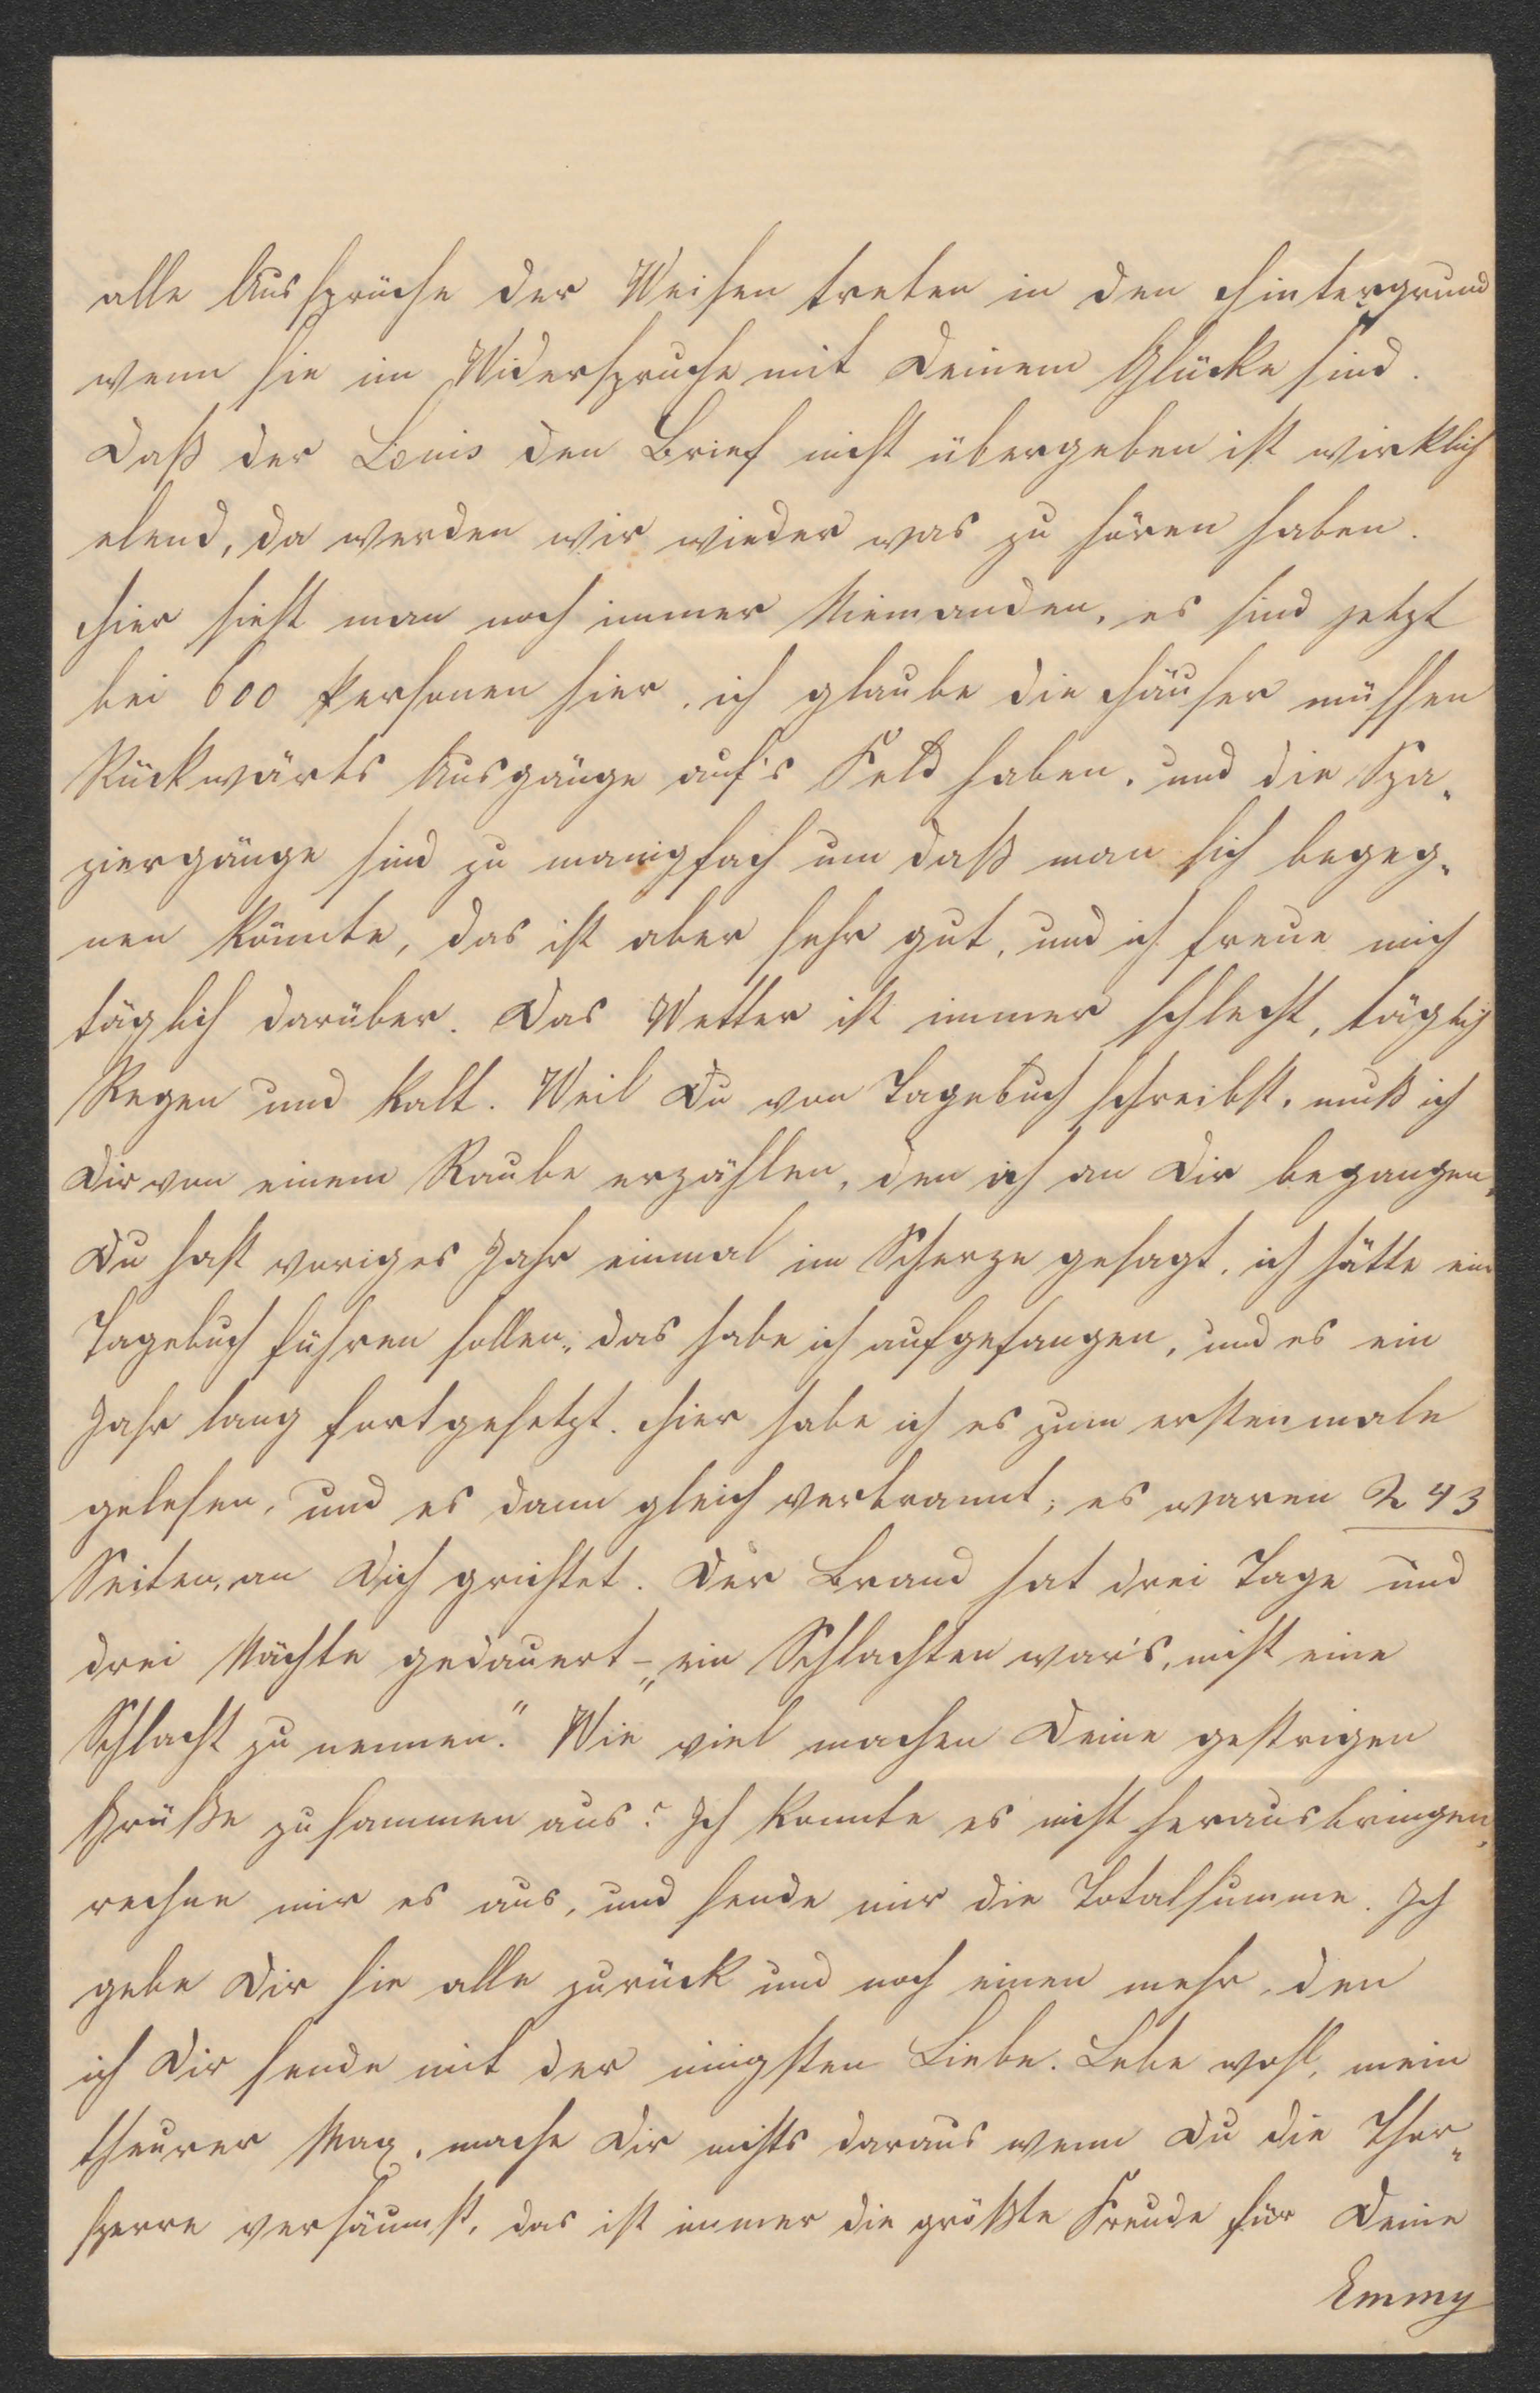 alle Aussprüche der Weisen treten in den Hintergrund
wenn sie im Widerspruche mit Deinem Glücke sind.
Daß der Louis den Brief nicht übergeben ist wirklich
elend, da werden wir wieder was zu hören haben.
Hier sieht man noch immer Niemanden, es sind jetzt
bei 600 Personen hier, ich glaube die Häuser müssen
Rückwärts Ausgänge auf's Feld haben, und die Spa„
ziergänge sind zu manigfach um daß man sich begeg„
nen könnte, das ist aber sehr gut, und ich freue mich
täglich darüber. Das Wetter ist immer schlecht, täglich
Regen und kalt. Weil Du von Tagebuch schreibst, muß ich
Dir von einem Raube erzählen, den ich an Dir begangen,
Du hast voriges Jahr einmal im Scherze gesagt, ich hätte ein
Tagebuch führen sollen, das habe ich aufgefangen, und es ein
Jahr lang fortgesetzt. Hier habe ich es zum erstenmale
gelesen, und es dann gleich verbrannt; es waren 243
Seiten, an Dich grichtet. Der Brand hat drei Tage und
drei Nächte gedauert – „ein Schlachten war's, nicht eine
Schlacht zu nennen." Wie viel machen Deine gestrigen
Grüße zusammen aus? Ich konnte es nicht herausbringen,
rechne mir es aus, und sende mir die Totalsumme. Ich
gebe Dir sie alle zurück und noch einen mehr, den
ich Dir sende mit der innigsten Liebe. Lebe wohl, mein
theurer Max, mache Dir nichts daraus wenn Du die Thor„
sperre versäumst, das ist immer die größte Freude für Deine
Emmy